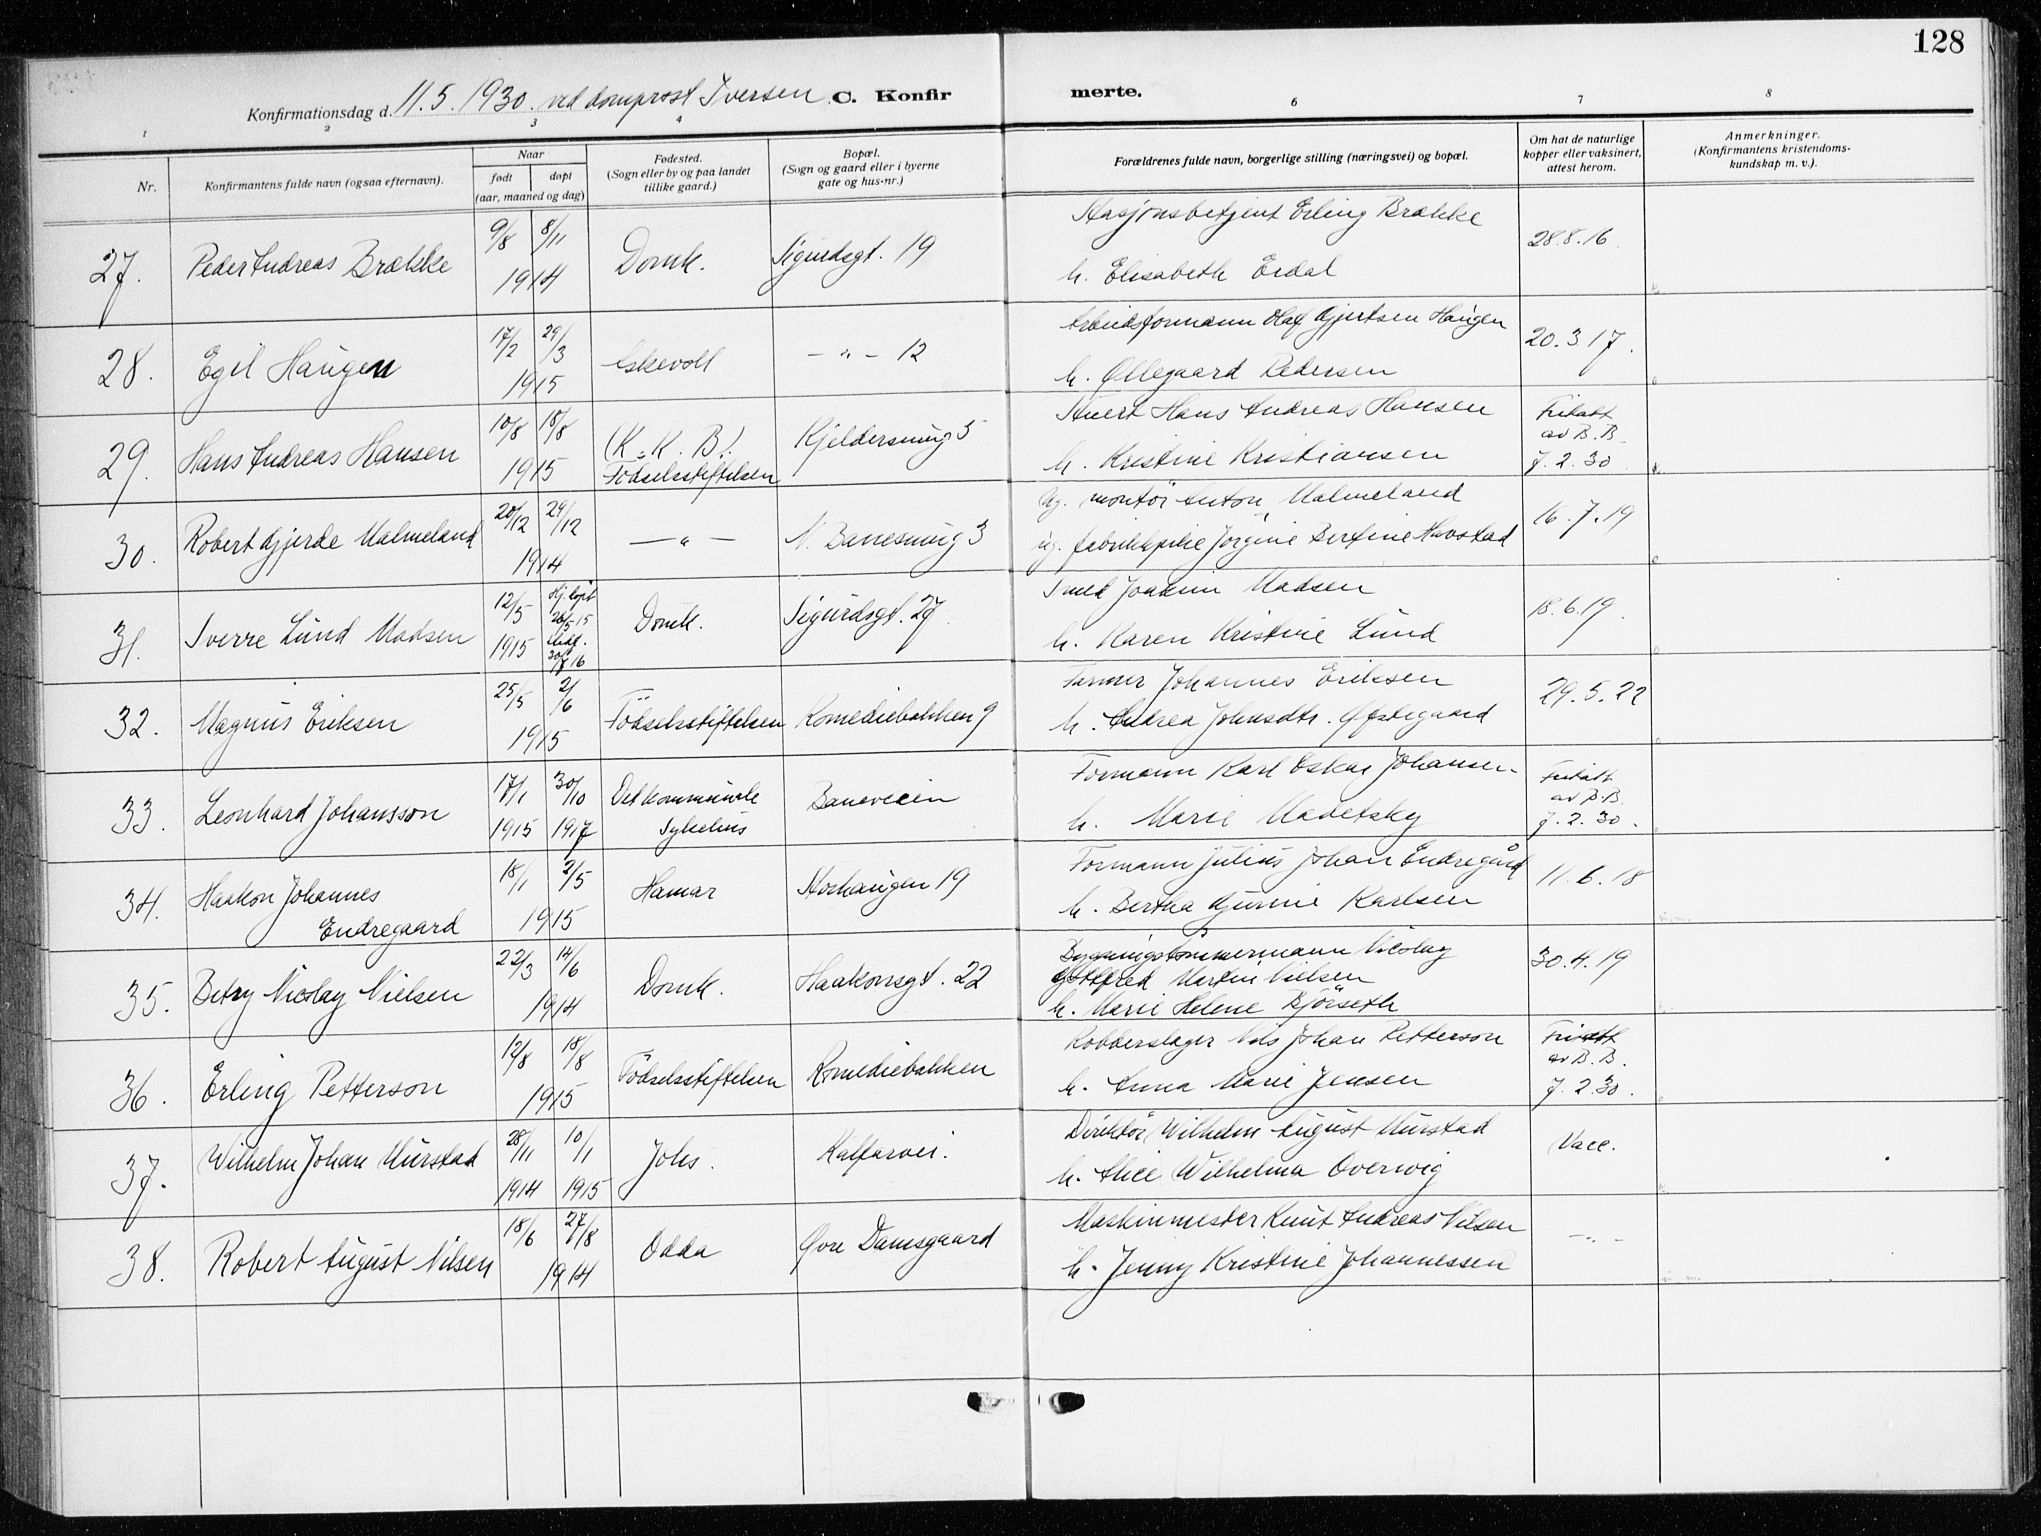 128
Konfirmationsdag d. 11.5.1930. ved domprost Iversen C. Konfirmerte.
1 2 3 4 6 7 8
Nr.
Konfirmantens fulde navn (ogsaa efternavn).
Naar
født
døpt
(aar, maaned og dag)
Fødested.
(Sogn eller by og paa landet
tillike gaard.)
Bopæl.
(Sogn og gaard eller i byerne
gate og hus-nr.)
Forældrenes fulde navn, borgerlige stilling (næringsvei) og bopæl.
Om hat de naturlige
kopper eller vaksinert,
attest herom.
Anmerkninger.
(Konfirmantens kristendoms-
kundskap m. v.).
27. Peder Andreas Brække 9/8 8/11 1914 Domk. Sigurdsgt. 19
Stasjonsbetjent Erling Brække
h. Elisabeth Eidal
28.8.16.
28. Egil Haugen 17/2 29/3 1915 Askevoll — " — 12
Arbeidsformann Olaf Gjertsen Haugen
h. Øllegaard Pedersen
20.3.17.
29. Hans Andreas Hansen 10/8 18/8 1915 (K.K.B.). Födselsstiftelsen Kjeldersmug 5
Hans Andreas Hansen
h. Kristine Kristiansen
Fritatt
av B.B.
7.2.30
30. Robert Gjerde Malmeland 20/12 29/12 1914 — " — N. Banesmug 3
Ug. montör Anton Malmeland
ug. fabrikkpike Jörgine Bertine Havstad
16.7.19
31. Sverre Lund Madsen 12/5 1915 Hj. döpt 26/5 15 Domk. Sigurdsgt. 27
Smed Joakim Madsen
h. Karen Kristine Lund
18.6.19.
32. Magnus Eriksen 25/5 2/6 1915 Födselsstiftelsen Komediebakken 9
Farmer Johannes Eriksen
h. Andrea Johnsdtr. Østegaard
29.5.22
33. Leonhard Johansson 17/1 1915 30/10 1917 Det kommunale Sykehus Baneveien
Formann Karl Oskar Johansen
h. Marie Madetsky
Fritatt
av B.B.
7.2.30.
34. Haakon Johannes
Endregaard 18/1 2/5 1915 Hamar Storhaugen 19
Formann Julius Johan Endregård
h. Bertha Gurine Karlsen
11.6.18
35. Betsy Nicolay Nielsen 22/3 14/6 1914 Domk. Haakonsgt. 22
Bygningstömmermann Nicolay
Gottfred Martin Nielsen
h. Marie Helene Björseth
30.4.19
36. Erling Petterson 12/8 18/8 1915 Födselsstiftelsen Komediebakken
Kobberslager Nils Johan Petterson
h. Anna Marie Jensen
Fritatt
av B.B.
7.2.30.
37. Wilhelm Johan Murstad 28/11 1914 10/1 1915 Johs. Kalfarvei.
Direktör Wilhelm August Murstad
h. Alice Wilhelma Overwig
Vacc.
38. Robert August Nilsen 18/6 27/8 1914 Odda Øvre Damsgaard
Maskinmester Knut Andreas Nilsen
h. Jenny Kristine Johannessen
— " —